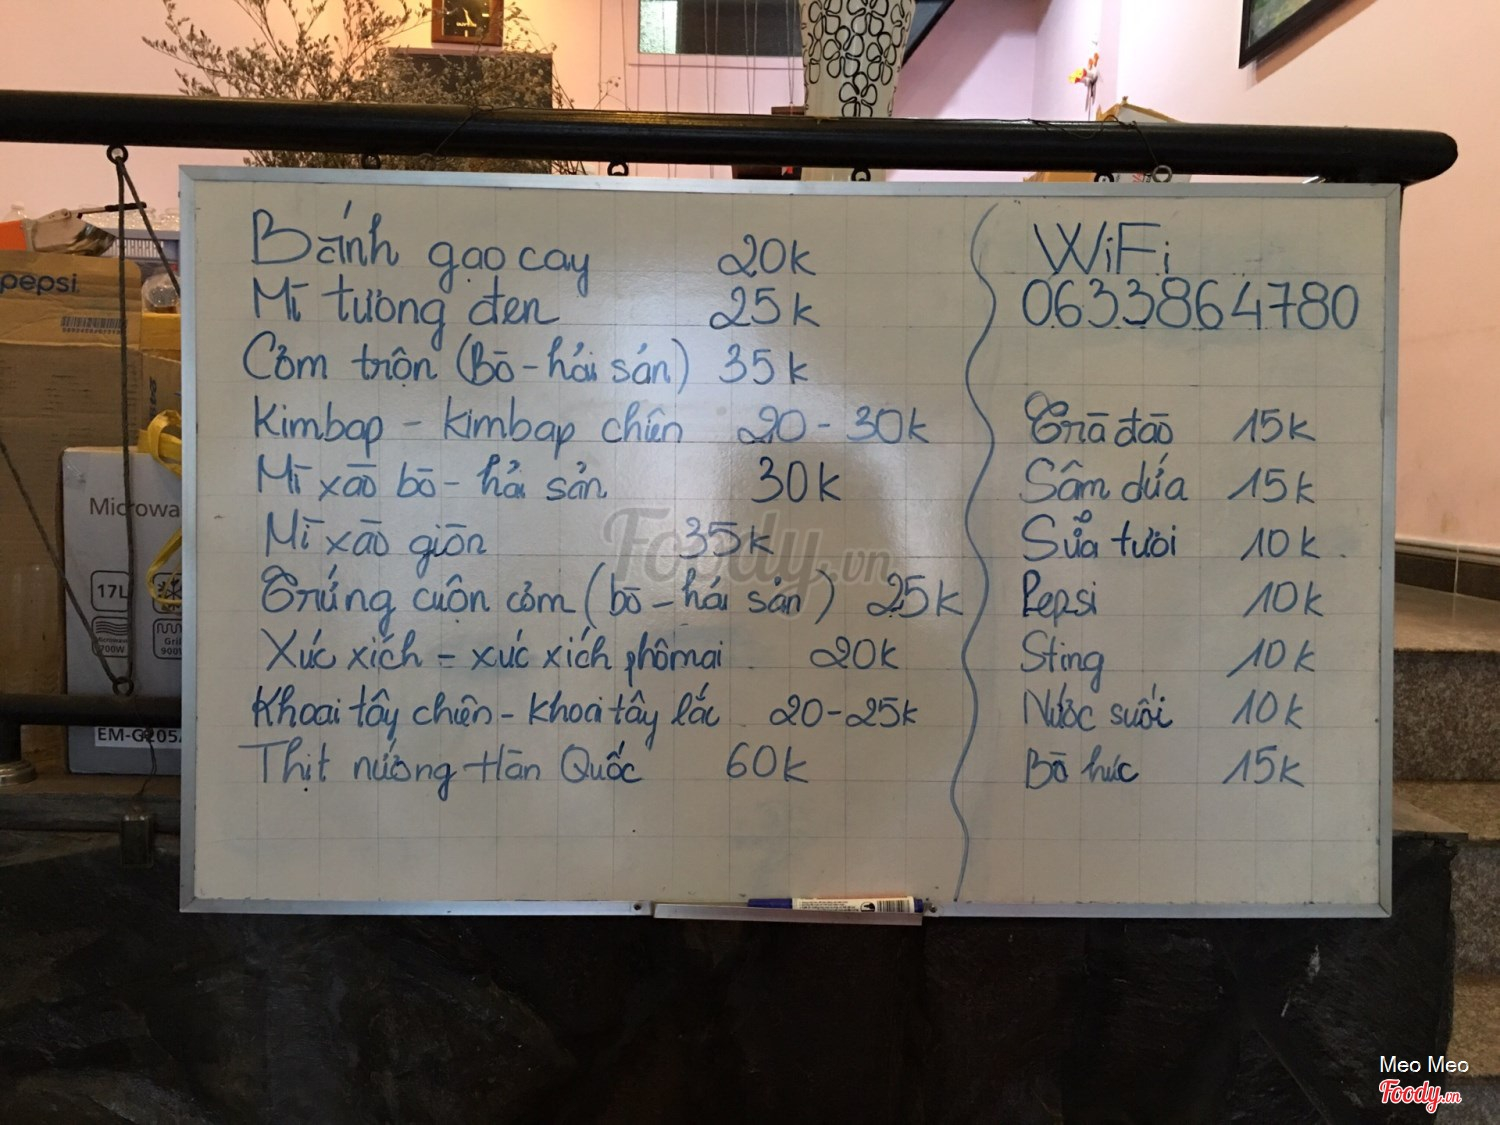 Bánh gạo cay 20k
Mì tương đen 25k
Cơm trộn (Bò - hải sản) 35k
Kimbap - kimbap chiên 20 - 30k
Mì xào bò - hải sản 30k
Mì xào giòn 35k
Trứng cuộn cơm (bò - hải sản) 25k
Xúc xích - xúc xích phômai 20k
Khoai tây chiên - khoai tây lắc 20 - 25k
Thịt nướng Hàn Quốc 60k
WiFi
0633864780
Trà đào 15k
Sâm dứa 15k
Sữa tươi 10k
Pepsi 10k
Sting 10k
Nước suối 10k
Bò húc 15k
pepsi
Microwa
17L
700W
Gril
900W
Foody.vn
Meo Meo
Foody.vn